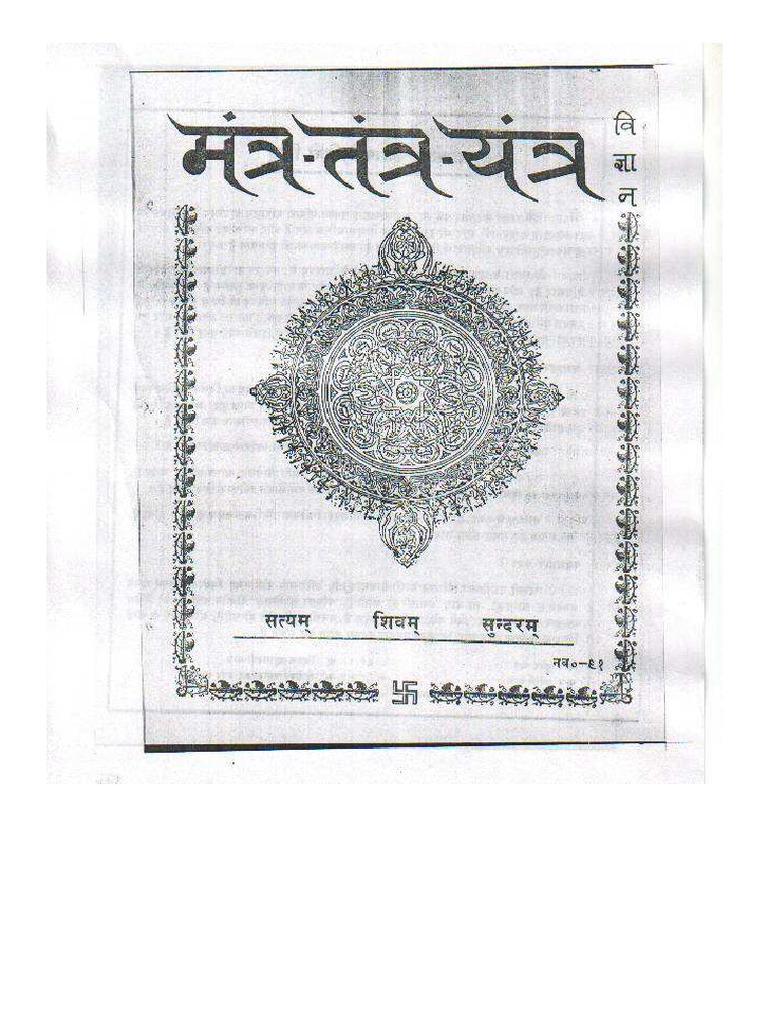 मंत्र-तंत्र-यंत्र
वि
ज्ञा
न
सत्यम् शिवम् सुन्दरम्
नव०-९१